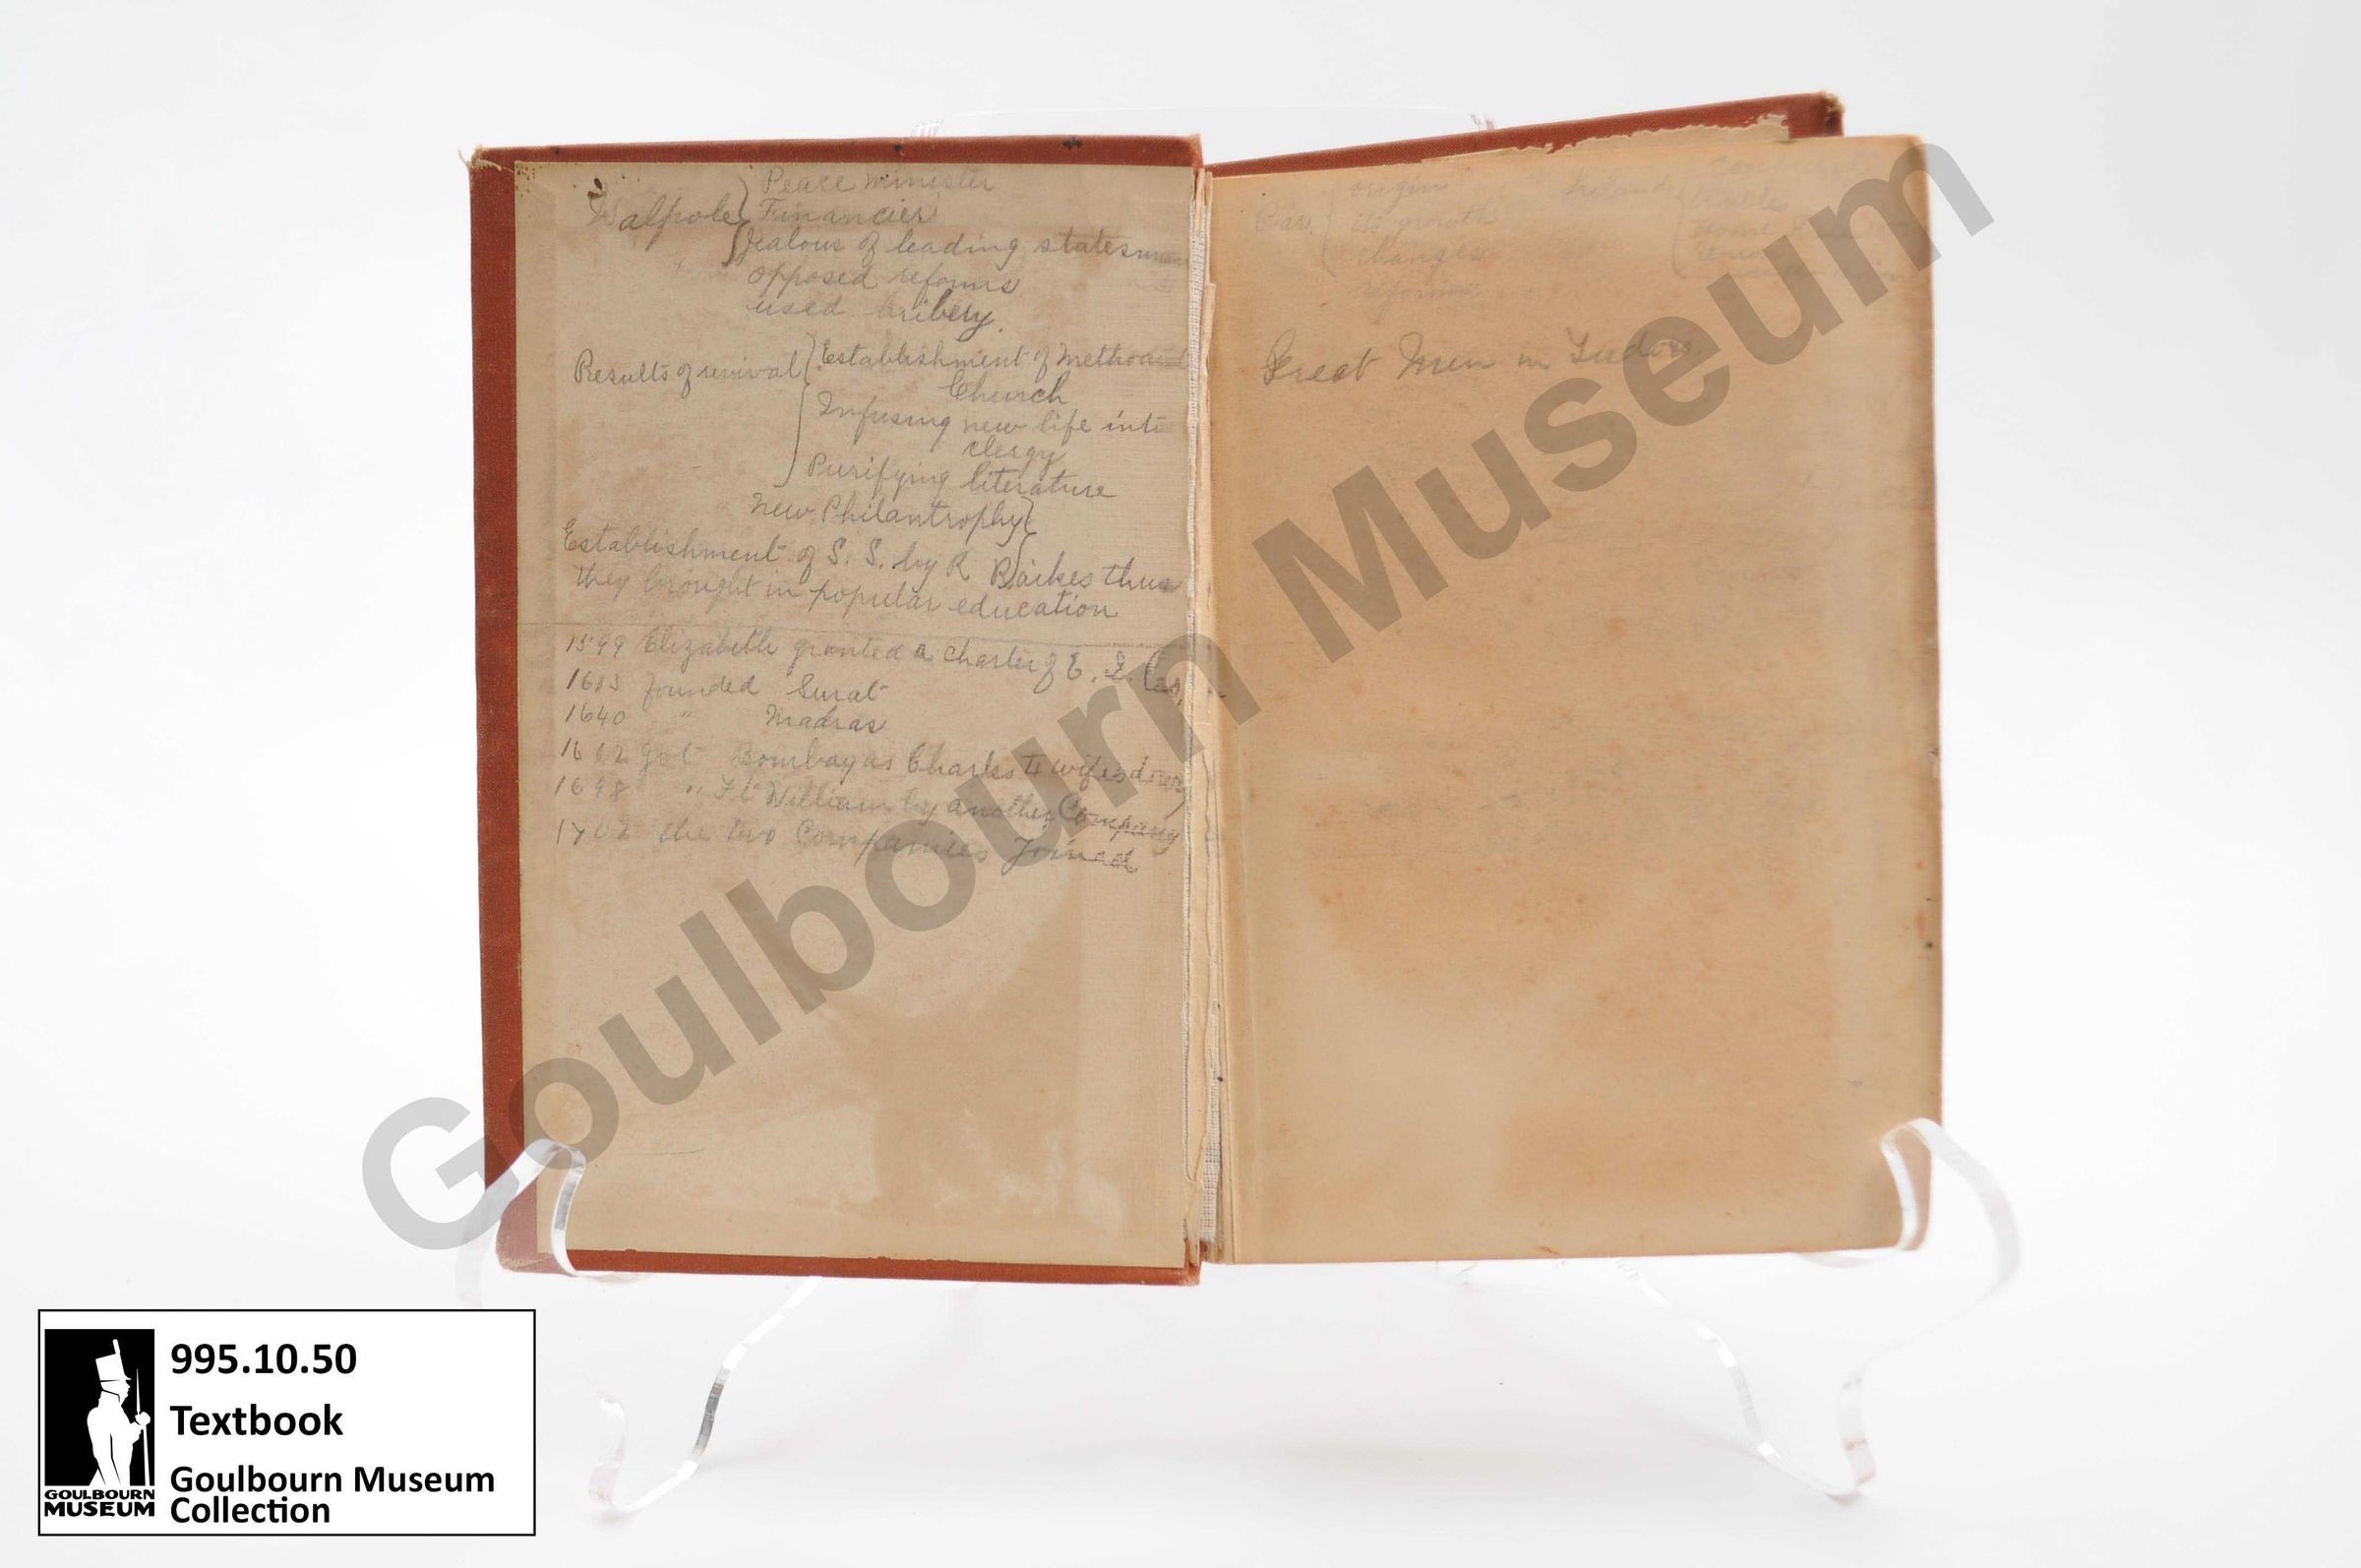 Peace minister
Walpole Financier
Jealous of leading
opposed reforms
used bribery.
Results of revival Establishment of
Church
Infusing new life into
clergy
Purifying literature
New Philantrophy
Establishment of S. S. by R Raikes thus
they brought in popular education
1599 Elizabeth granted a charter of E. I. Co.
1613 founded Surat
1640 " Madras
1662 got Bombay as Charles II wife's
1698 " Ft William by another Company
1702 the two Companies Joined
origin
its growth
changes
reforms
Ireland
Great Men in Tudor
Goulbourn Museum
995.10.50
Textbook
Goulbourn Museum
Collection
GOULBOURN
MUSEUM